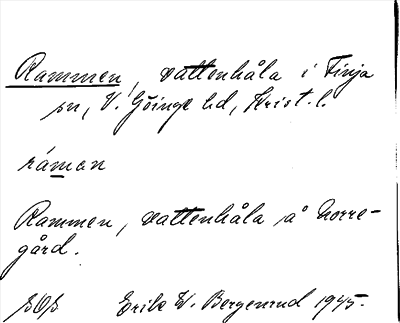 Rammen, vattenhåla i Finja
sn, V. Göinge hd, Krist. l.
ráman
Rammen, vattenhåla på Norre-
gård.
SOS Erik W. Bergenrud 1945.